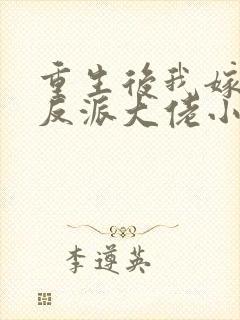 重生后我嫁
反派大佬小
李遵英